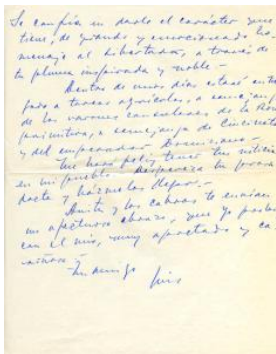 Se confía en darle el carácter que
tiene, de grande y emocionado ho-
menaje al Libertador, a través de
tu pluma inspirada y noble.-
Dentro de unos días estaré entre
gado a tareas agrícolas, a semejanza
de los varones consulares de la Roma
primitiva, a semejanza de Cincinato
y del emperador Diocleciano.-
Me hará feliz tener tus noticias
en mi pueblo.
dacte y házmelas llegar.-
Anita y los cabros te envían
un afectuoso abrazo, que yo
con el mío, muy apretado y ca-
riñoso.-
Tu amigo
Luis